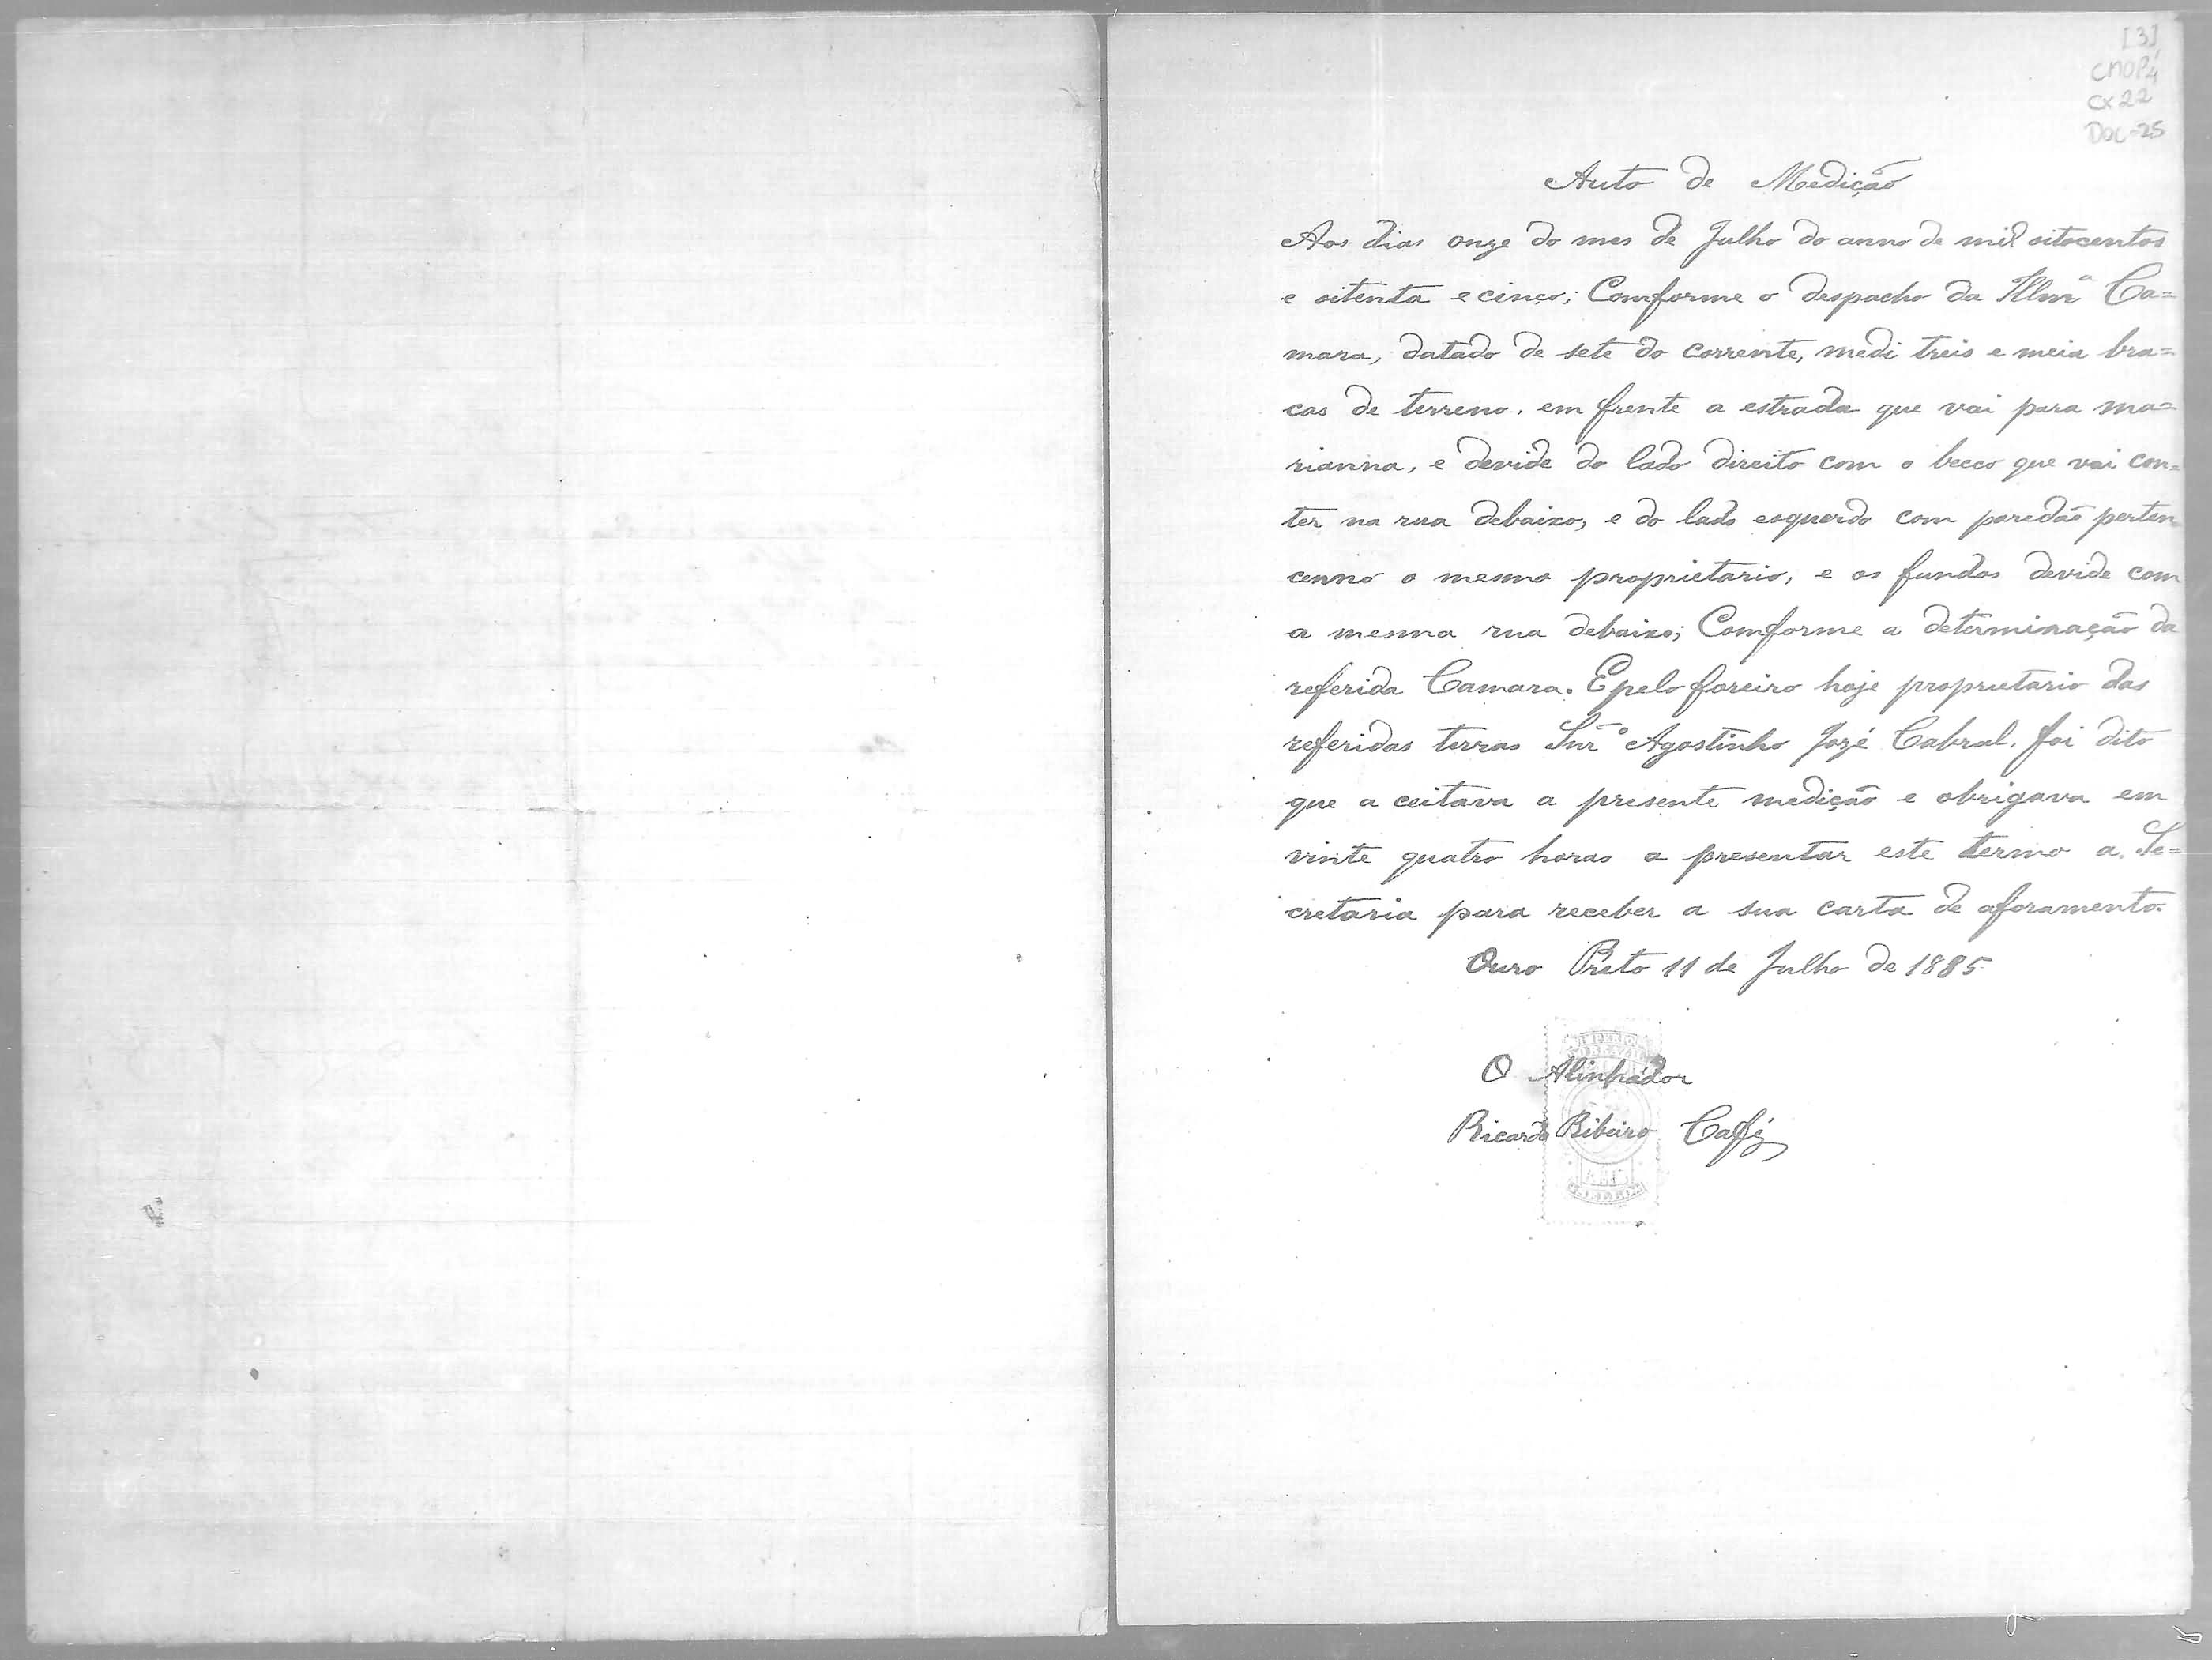 [3]
CMOP/4
CX 22
DOC=25
Auto de Medição
Aos dias onze do mes de Julho do anno de mil oitocentos
e oitenta e cinco; Comforme o despacho da Illmª Ca=
mara, datado de sete do corrente, medi treis e meia bra=
cas de terreno, em frente a estrada que vai para ma=
rianna, e devide do lado direito com o becco que vai con=
ter na rua debaixo, e do lado esquerdo com paredão perten
cenno o mesmo proprietario, e os fundos devide com
a mesma rua debaixo; Comforme a determinação da
referida Camara. E pelo foreiro hoje proprietario das
referidas terras Snrº Agostinho Jozé Cabral, foi dito
que a ceitava a presente medição e obrigava em
vinte quatro horas a presentar este termo a Se=
cretaria para receber a sua carta de aforamento.
Ouro Preto 11 de Julho de 1885
O Alinhador
Ricardo Ribeiro Caffé